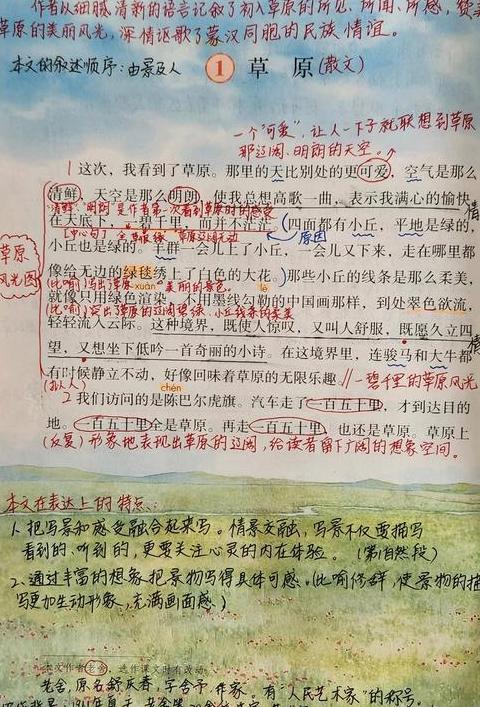 作者以细腻清新的语言记叙了初入草原的所见、所闻、所感，赞美
草原的美丽风光，深情讴歌了蒙汉同胞的民族情谊。
本文的叙述顺序：由景及人
1 草 原 (散文)
一个"可爱"，让人一下子就联想到草原
那辽阔、明朗的天空。
1 这次，我看到了草原。那里的天比别处的更可爱，空气是那么
清鲜，天空是那么明朗，使我总想高歌一曲，表示我满心的愉快。
情
清鲜、明朗是作者第一次看到草原时的感受
在天底下，一碧千里，而并不茫茫。四面都有小丘，平地是绿的，
原因
小丘也是绿的。羊群一会儿上了小丘，一会儿又下来，走在哪里都
草原
风光图
像给无边的绿毯绣上了白色的大花。那些小丘的线条是那么柔美，
(比喻)写出草原 美丽的景色。
xuàn
lè
就像只用绿色渲染，不用墨线勾勒的中国画那样，到处翠色欲流，
(比喻)突出了草原的辽阔碧绿、小丘线条的柔美
轻轻流入云际。这种境界，既使人惊叹，又叫人舒服，既愿久立四
望，又想坐下低吟一首奇丽的小诗。在这境界里，连骏马和大牛都
情
有时候静立不动，好像回味着草原的无限乐趣。//一碧千里的草原风光
(拟人)
chén
2 我们访问的是陈巴尔虎旗。汽车走了一百五十里，才到达目的
地。一百五十里全是草原。再走一百五十里，也还是草原。草原上
(反复)形象地表现出草原的辽阔，给读者留下广阔的想象空间。
本文在表达上的特点：
1、把写景和感受融合起来写。情景交融，写景不仅要描写
看到的、听到的，更要关注心灵的内在体验。（第1自然段）
2、通过丰富的想象把景物写得具体可感。(比喻修辞，使景物的描
写更加生动形象，充满画面感。)
本文作者老舍，选作课文时有改动。
老舍，原名舒庆春，字舍予，作家。有"人民艺术家"的称号。